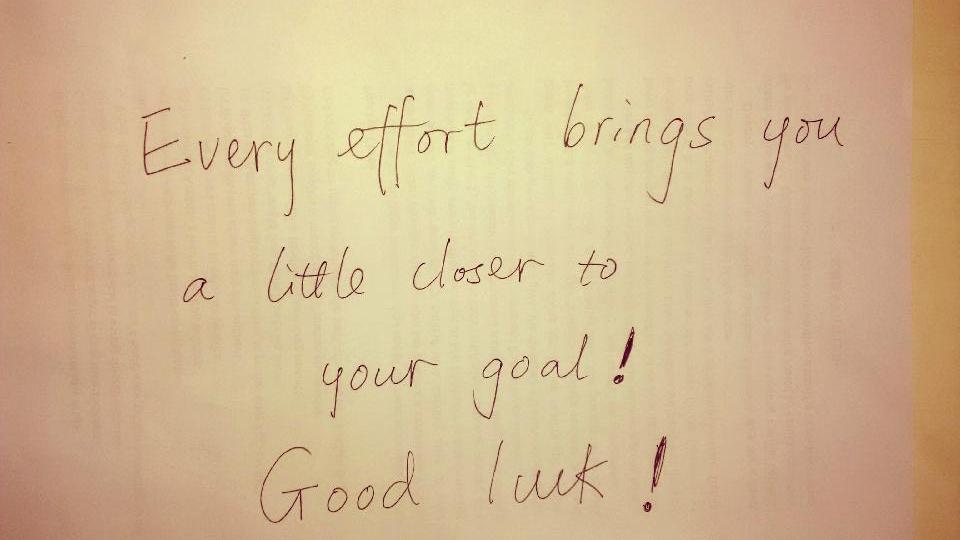 Every effort brings you
a little closer to
your goal!
Good luck!